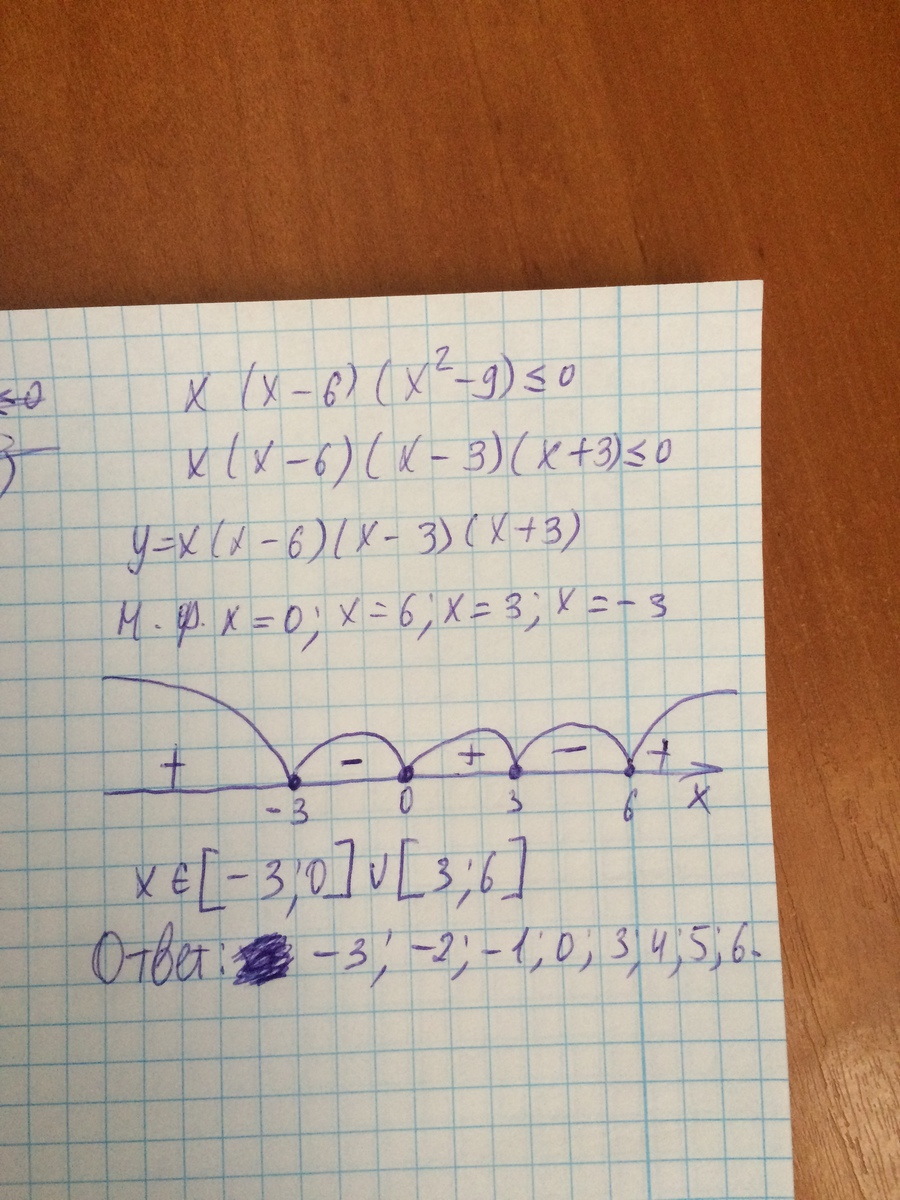 ≤0
x (x-6)(x²-9)≤0
x(x-6)(x-3)(x+3)≤0
y=x(x-6)(x-3)(x+3)
Н.ф. x=0; x=6; x=3; x=-3
+ - + - +
-3 0 3 6 x
x∈[-3;0]∪[3;6]
Ответ: -3; -2; -1; 0; 3; 4; 5; 6.